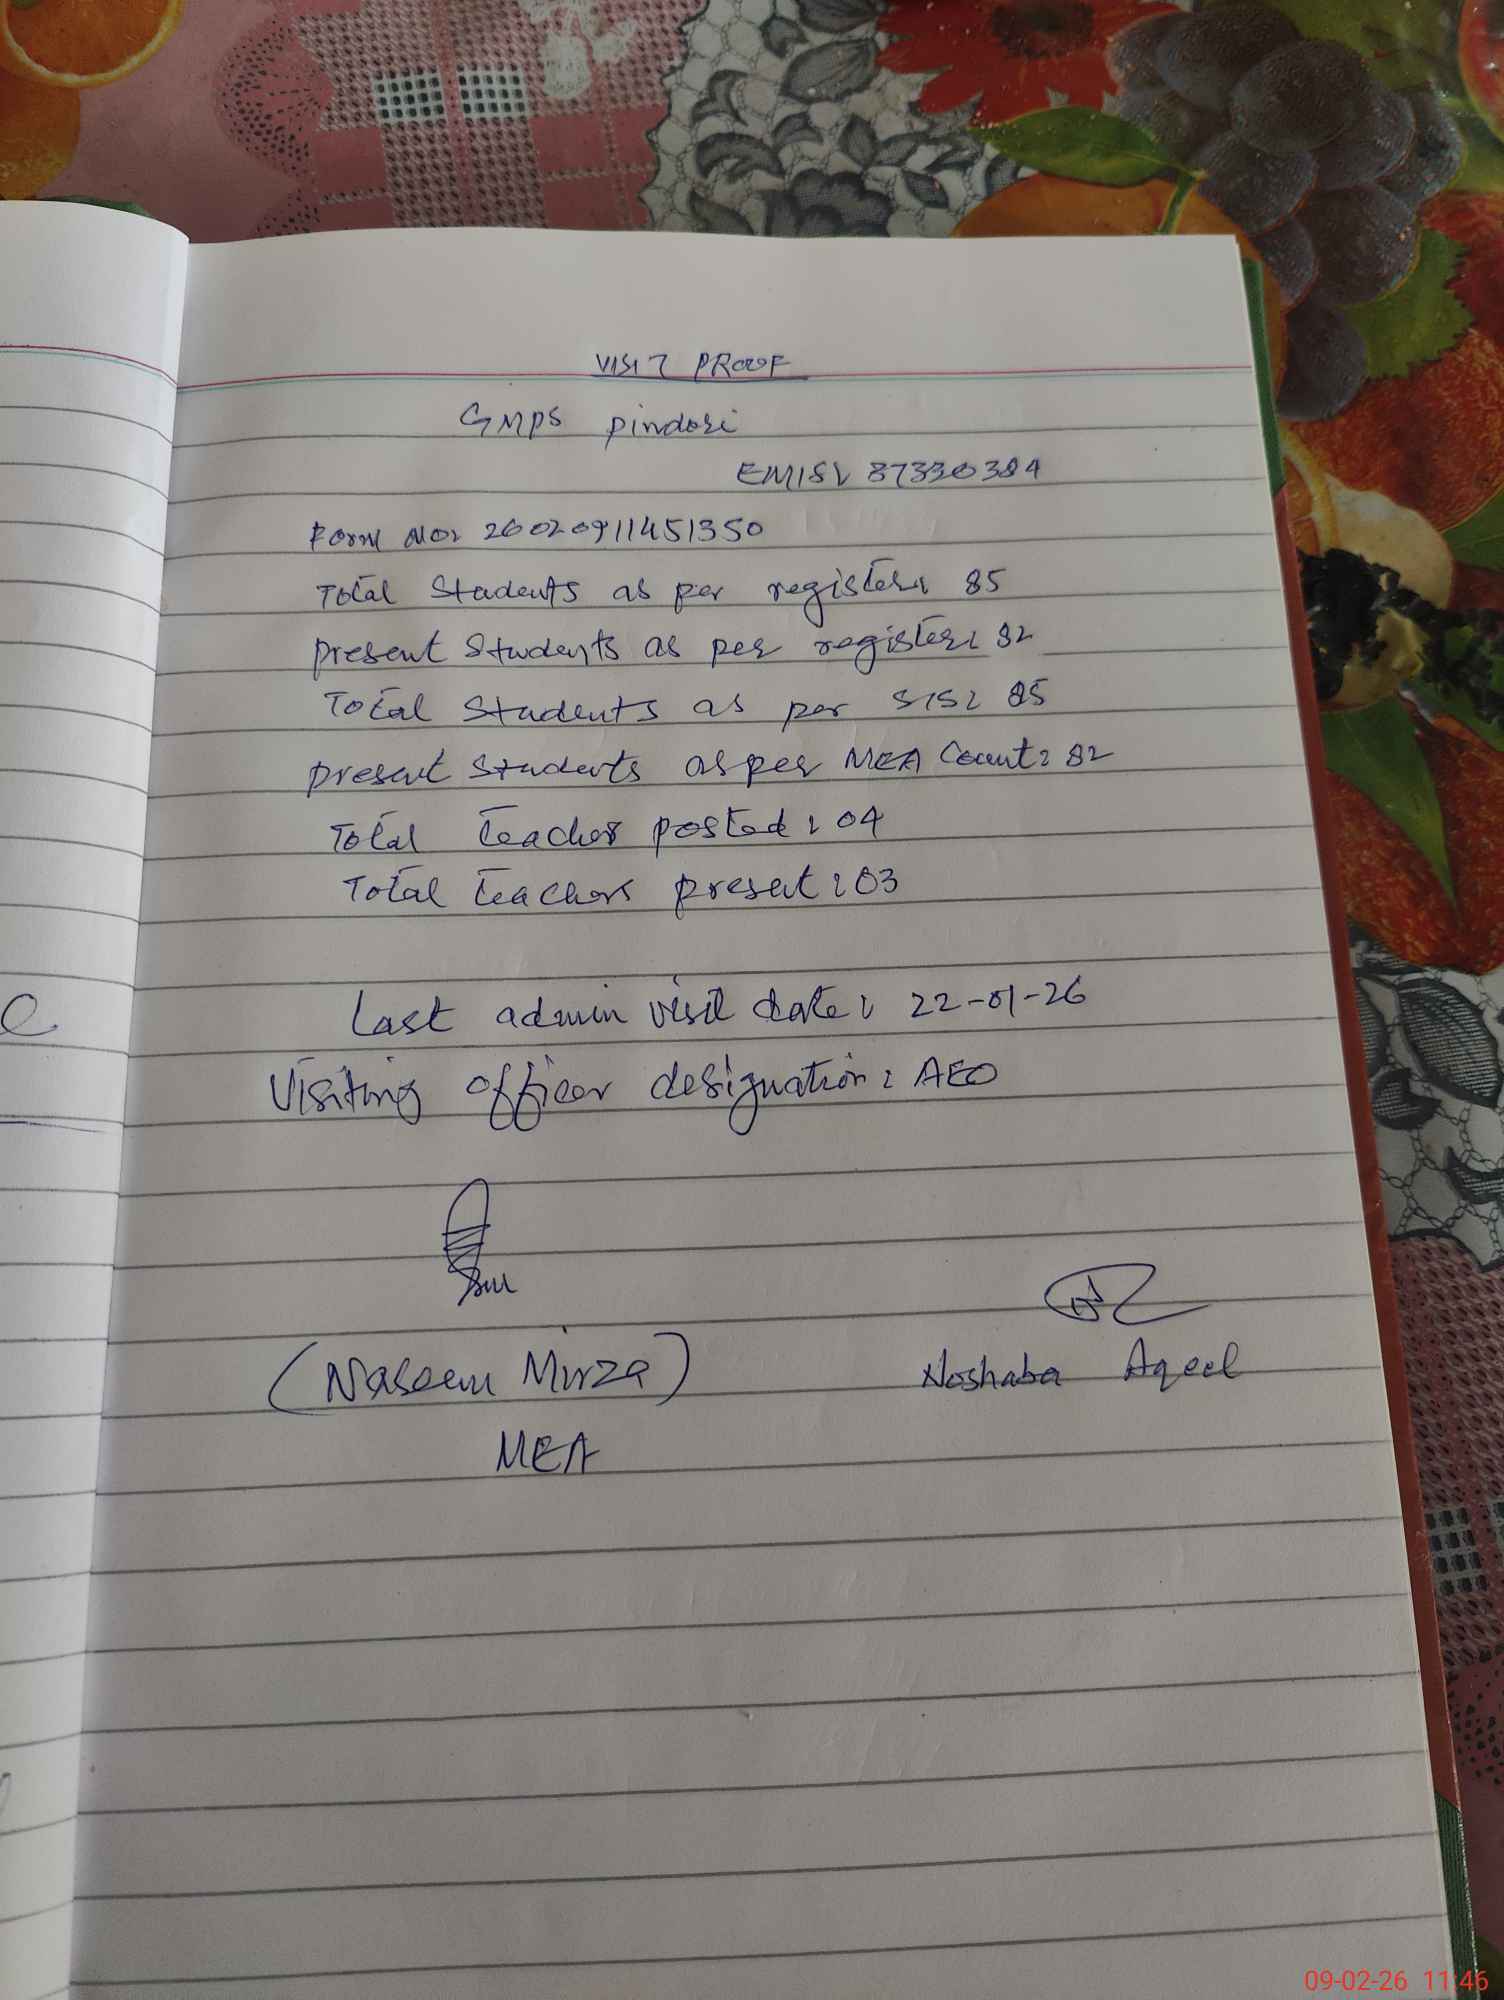 VISIT PROOF
GMPS pindori
EMIS: 37330384
Form No: 26020911451350
Total Students as per register: 85
present Students as per register: 82
Total Students as per SIS: 85
present Students as per MEA Count: 82
Total teacher posted: 04
Total teachers present: 03
Last admin visit date: 22-01-26
Visiting officer designation: AEO
(Naseem Mirza)
Noshaba Aqeel
MEA
09-02-26 11:46